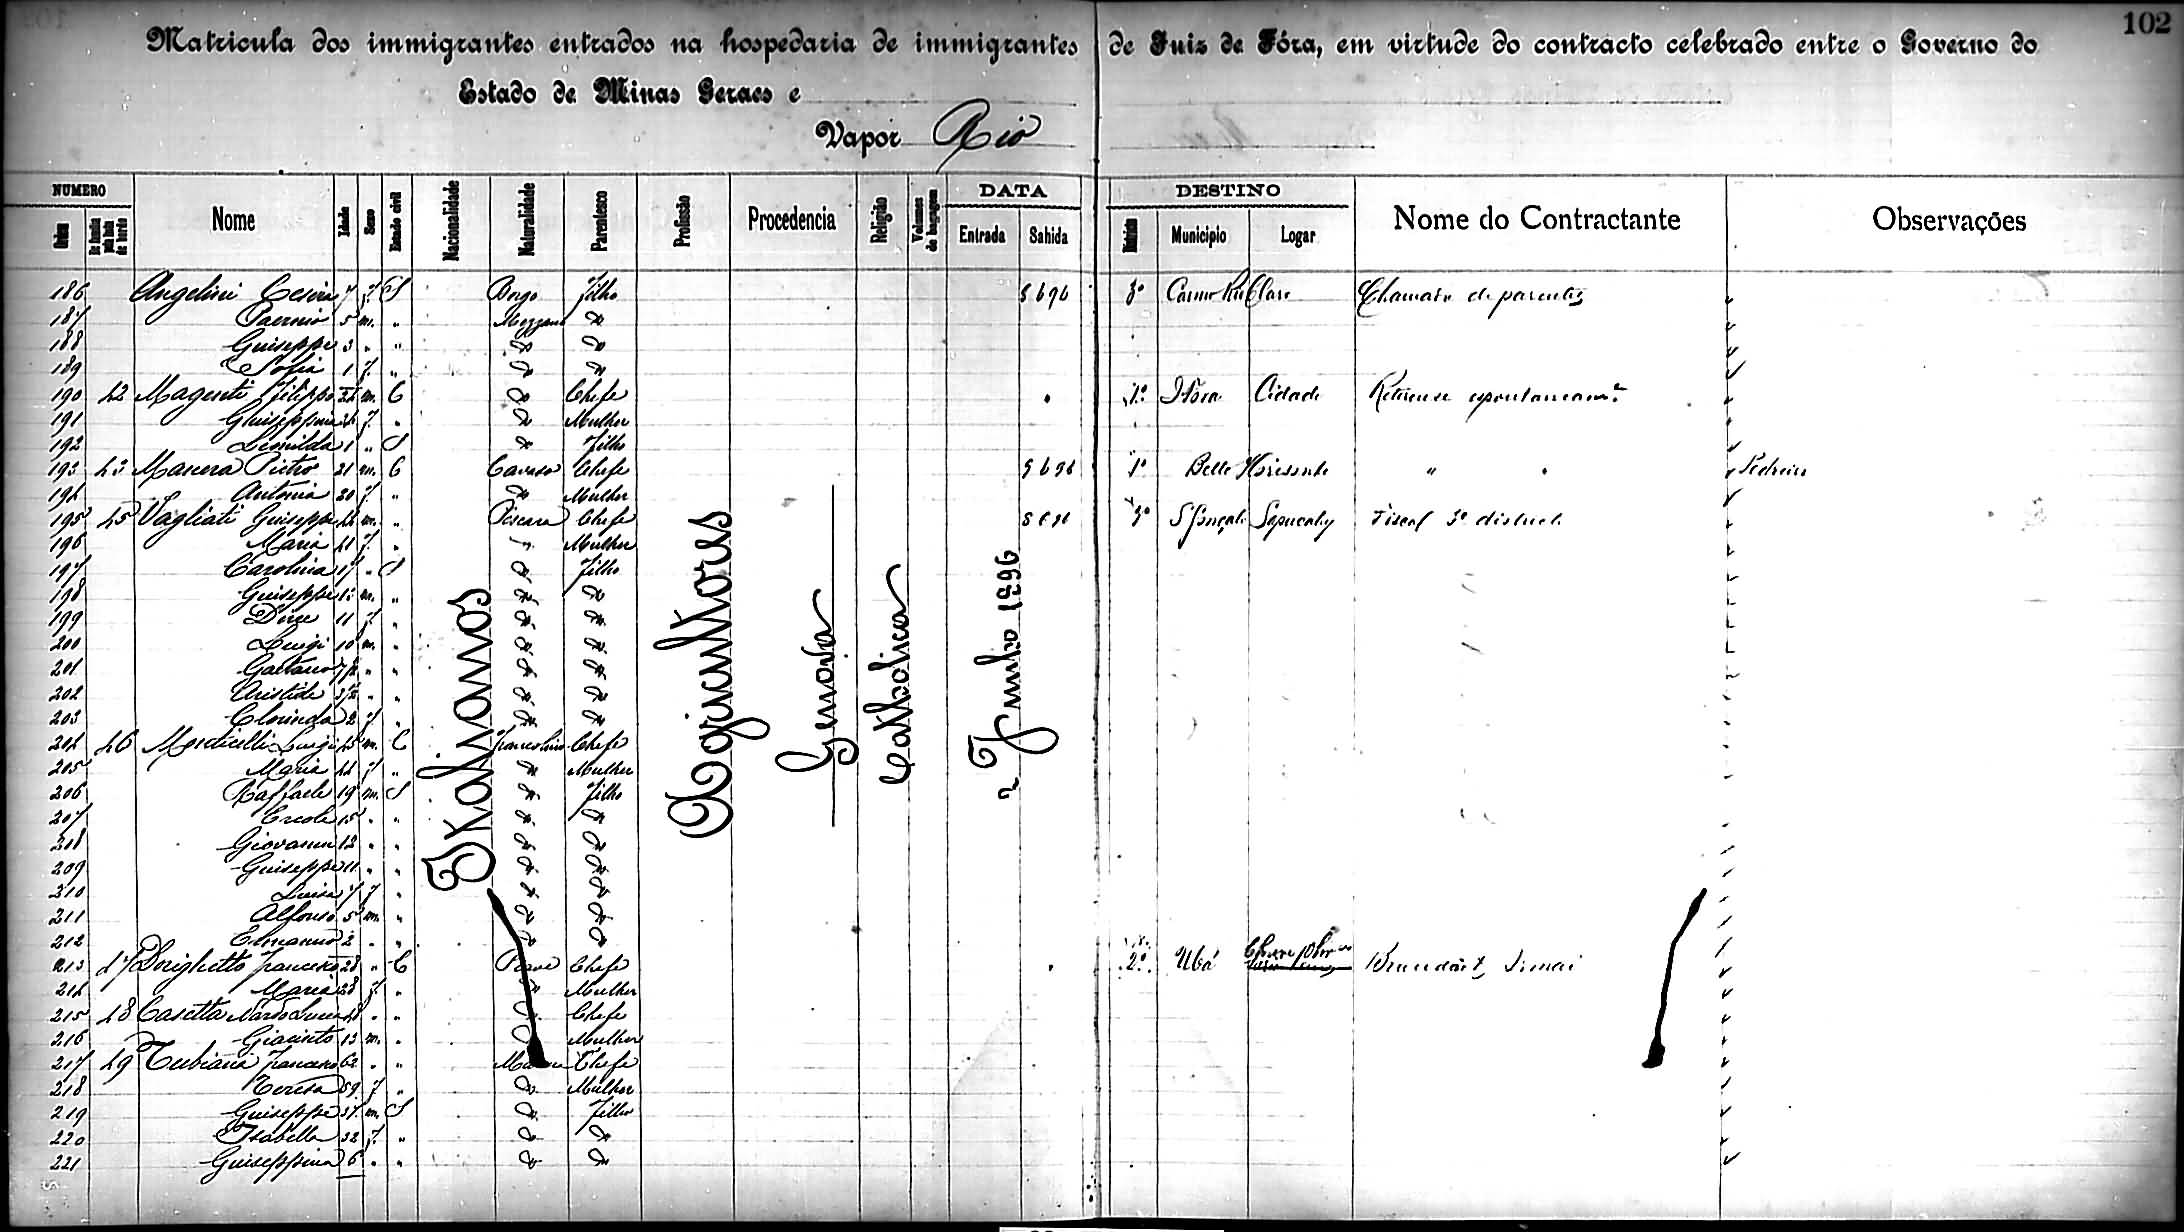 102
Matricula dos immigrantes entrados na hospedaria de immigrantes de Juiz de Fóra, em virtude do contracto celebrado entre o Governo do
Estado de Minas Geraes e
Vapor Rio
NUMERO DATA DESTINO
Ordem Nome Idade Sexo Estado civil Nacionalidade Naturalidade Parentesco Profissão Procedencia Religião Volumes de bagagem Entrada Sahida Districto Municipio Logar Nome do Contractante Observações
Italianos
Agricultores
Genova
Catholica
2 Junho 1896
186 Angelini Cesira 7 f. S Borgo filho 5 6 96 3º Carmo Rio Claro Chamado de parentes
187 5 m. " Mezzano do
188 Guiseppe 3 " " do do
189 Sofia 1 f. " do do
190 42 Magenti Filippo m. C do Chefe 1º J Fóra Cidade
191 Guiseppina 26 f. " do Mulher
192 1 " S do filho
193 43 Pietro 31 m. C Chefe 9 6 96 1º Bello Horisonte " " Pedreiro
194 Antonia 30 f. " do Mulher
195 45 Vagliati Guiseppe 44 m. " Chefe 5 6 96 3º S Gonçalo Sapucahy Fiscal 3º districto
196 Maria 41 f. " Mulher
197 Carolina 17 " S do filho
198 Guiseppe m. " do do
199 Dirce 11 f. " do do
200 Luigi 10 m. " do do
201 Gaetano " " do do
202 Aristide " " do do
203 Clorinda 2 f. " do do
204 46 Monticelli Luigi 45 m. C Francolino Chefe
205 Maria 44 f. " do Mulher
206 Raffaele 19 m. S do filho
207 Ercole 15 " " do do
208 Giovanni 12 " " do do
209 Guiseppe 11 " " do do
210 Luisa 7 f. " do do
211 Alfonso 5 m. " do do
212 Ermanno 2 " " do do
213 47 Dorighetto Francesco 28 " C Piave Chefe 2º Ubá
214 Maria 28 f. " do Mulher
215 48 Casetta 48 " " do Chefe
216 Giacinto 13 m. " do Mulher
217 49 Tubiana Francesco 62 " " Chefe
218 Teresa 59 f. " do Mulher
219 Guiseppe 37 m. S do filho
220 Isabella 32 f. " do do
221 Guiseppina 6 " " do do